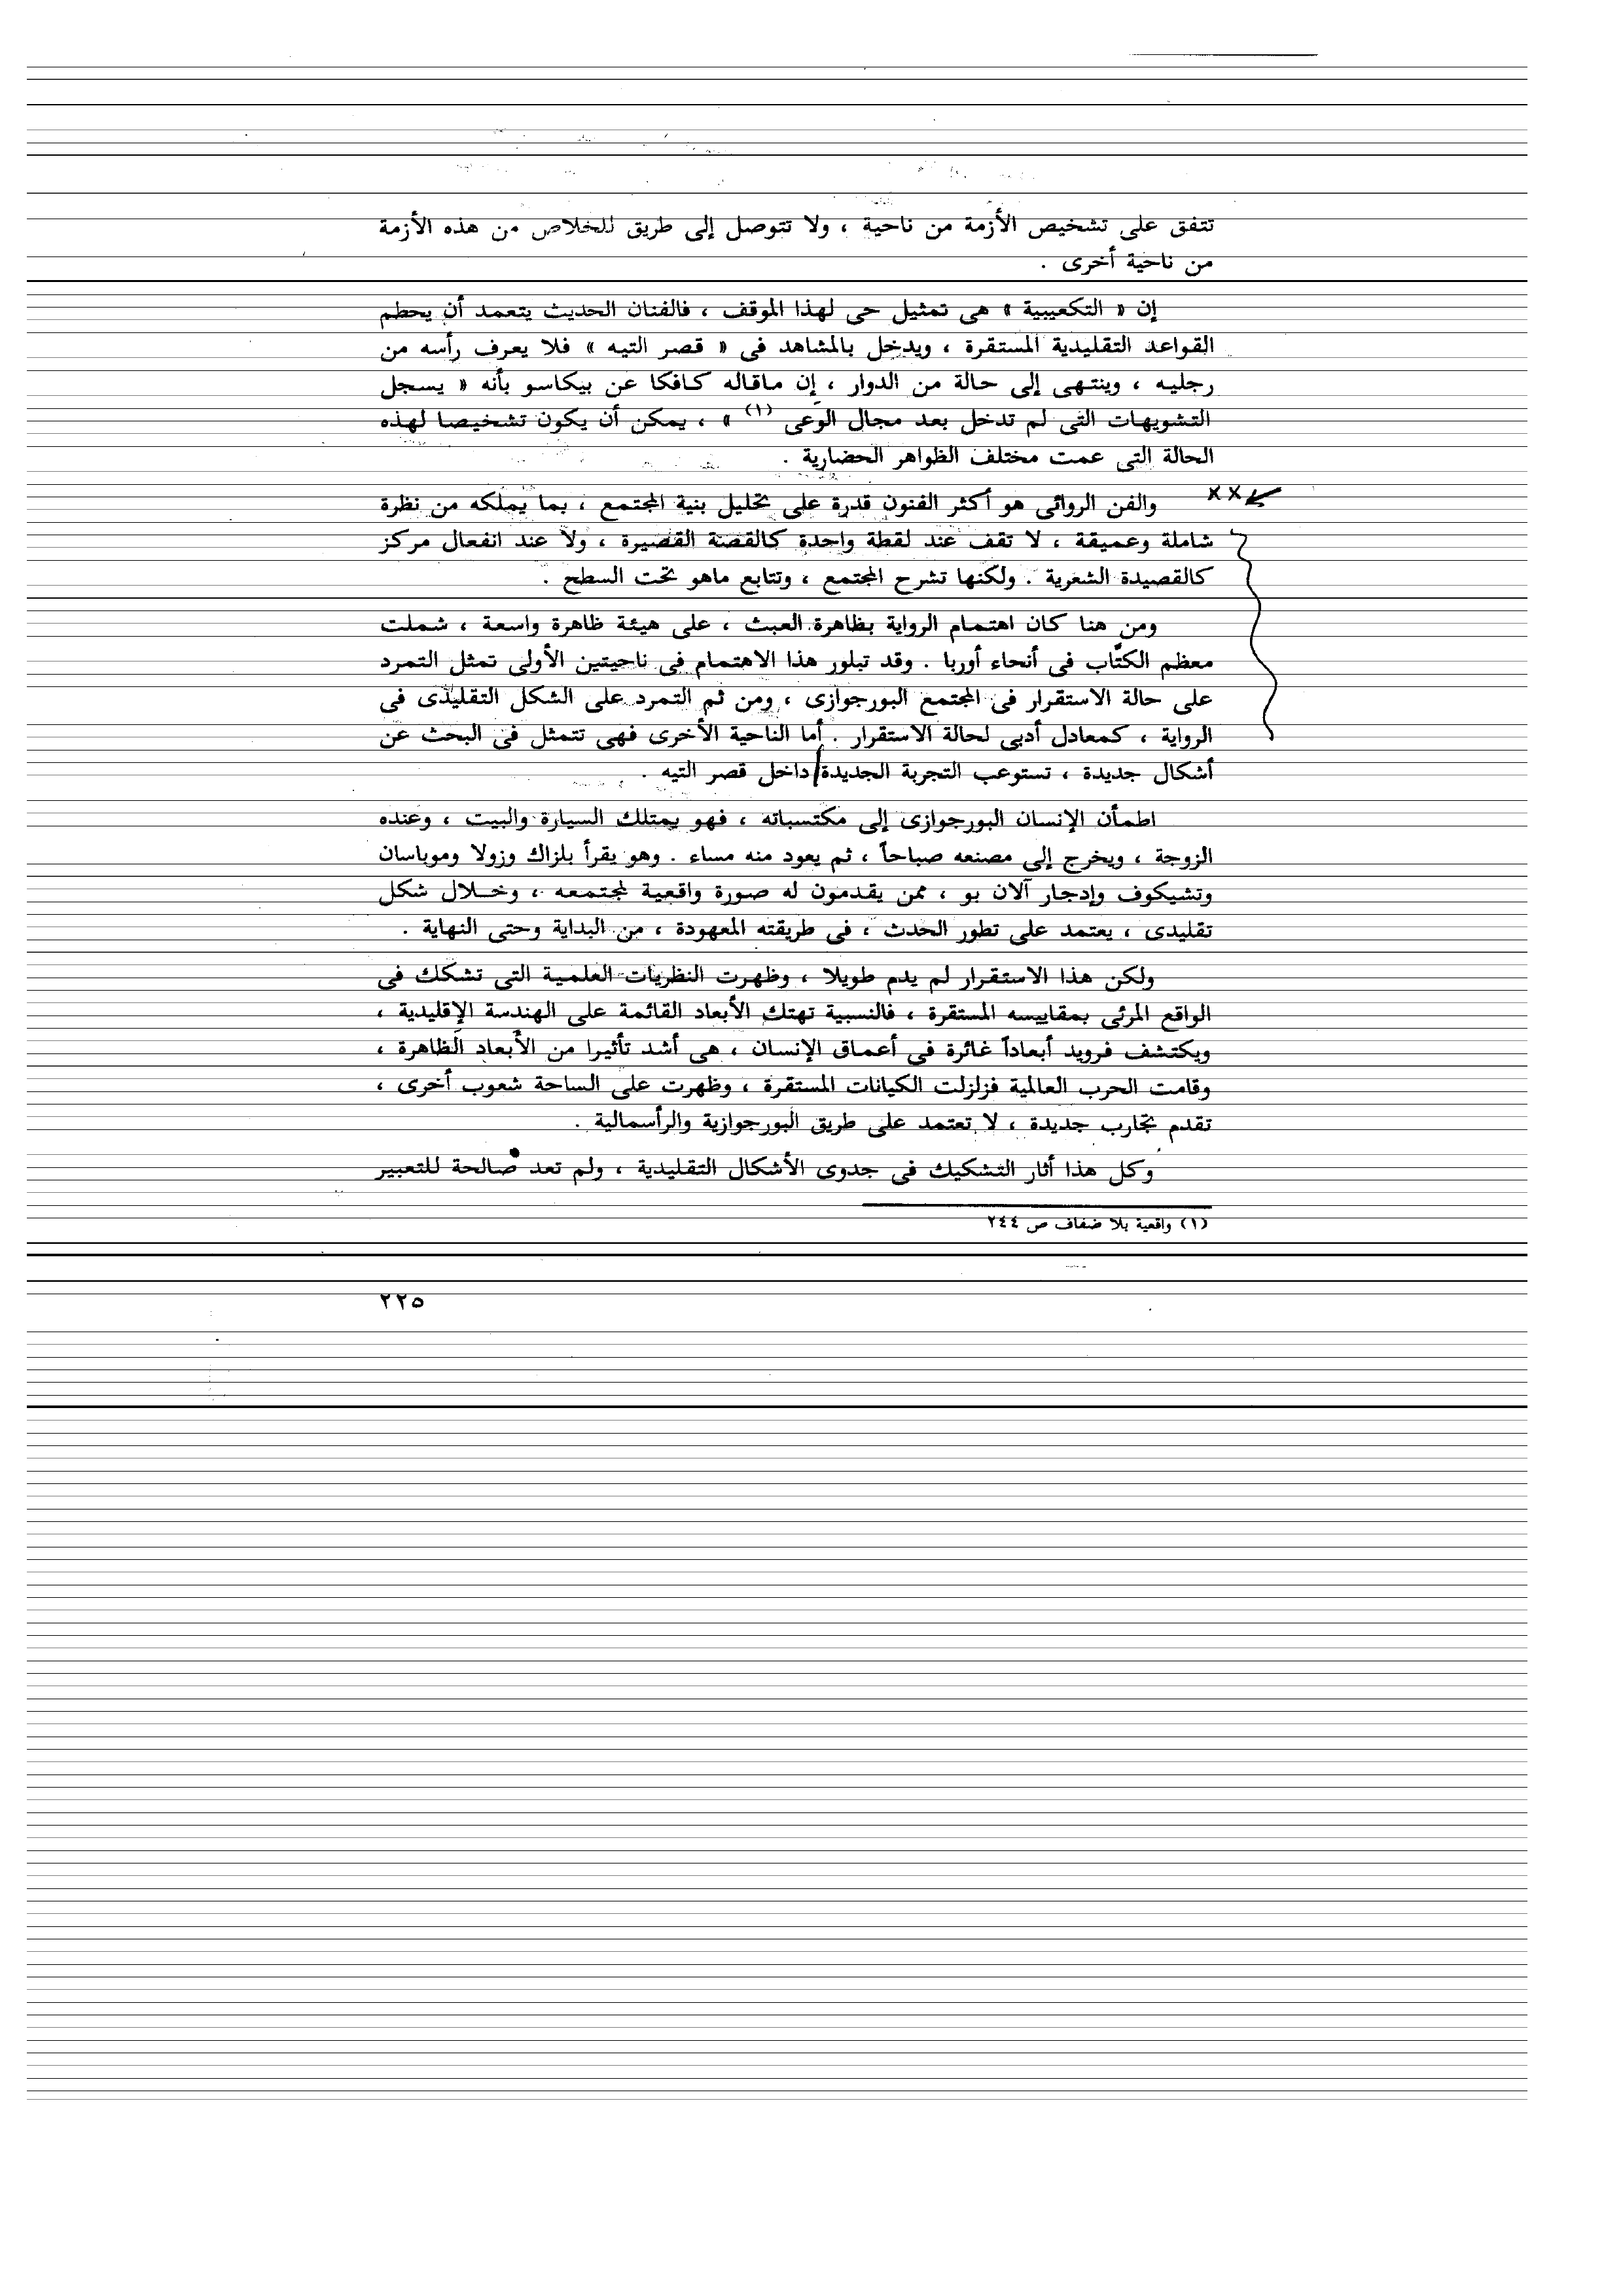 تتفق على تشخيص الأزمة من ناحية ، ولا تتوصل إلى طريق للخلاص من هذه الأزمة
من ناحية أخرى .
إن « التكعيبية » هى تمثيل حى لهذا الموقف ، فالفنان الحديث يتعمد أن يحطم
القواعد التقليدية المستقرة ، ويدخل بالمشاهد فى « قصر التيه » فلا يعرف رأسه من
رجليه ، وينتهى إلى حالة من الدوار ، إن ماقاله كافكا عن بيكاسو بأنه « يسجل
التشويهات التى لم تدخل بعد مجال الوعى (١) » ، يمكن أن يكون تشخيصا لهذه
الحالة التى عمت مختلف الظواهر الحضارية .
والفن الروائى هو أكثر الفنون قدرة على تحليل بنية المجتمع ، بما يملكه من نظرة
شاملة وعميقة ، لا تقف عند لقطة واحدة كالقصة القصيرة ، ولا عند انفعال مركز
كالقصيدة الشعرية . ولكنها تشرح المجتمع ، وتتابع ماهو تحت السطح .
ومن هنا كان اهتمام الرواية بظاهرة العبث ، على هيئة ظاهرة واسعة ، شملت
معظم الكتَّاب فى أنحاء أوربا . وقد تبلور هذا الاهتمام فى ناحيتين الأولى تمثل التمرد
على حالة الاستقرار فى المجتمع البورجوازى ، ومن ثم التمرد على الشكل التقليدى فى
الرواية ، كمعادل أدبى لحالة الاستقرار . أما الناحية الأخرى فهى تتمثل فى البحث عن
أشكال جديدة ، تستوعب التجربة الجديدة داخل قصر التيه .
اطمأن الإنسان البورجوازى إلى مكتسباته ، فهو يمتلك السيارة والبيت ، وعنده
الزوجة ، ويخرج إلى مصنعه صباحاً ، ثم يعود منه مساء . وهو يقرأ بلزاك وزولا وموباسان
وتشيكوف وإدجار آلان بو ، ممن يقدمون له صورة واقعية لمجتمعه ، وخلال شكل
تقليدى ، يعتمد على تطور الحدث ، فى طريقته المعهودة ، من البداية وحتى النهاية .
ولكن هذا الاستقرار لم يدم طويلا ، وظهرت النظريات العلمية التى تشكك فى
الواقع المرئى بمقاييسه المستقرة ، فالنسبية تهتك الأبعاد القائمة على الهندسة الإقليدية ،
ويكتشف فرويد أبعاداً غائرة فى أعماق الإنسان ، هى أشد تأثيرا من الأبعاد الظاهرة ،
وقامت الحرب العالمية فزلزلت الكيانات المستقرة ، وظهرت على الساحة شعوب أخرى ،
تقدم تجارب جديدة ، لا تعتمد على طريق البورجوازية والرأسمالية .
وكل هذا أثار التشكيك فى جدوى الأشكال التقليدية ، ولم تعد صالحة للتعبير
(١) واقعية بلا ضفاف ص ٢٤٤
٢٢٥